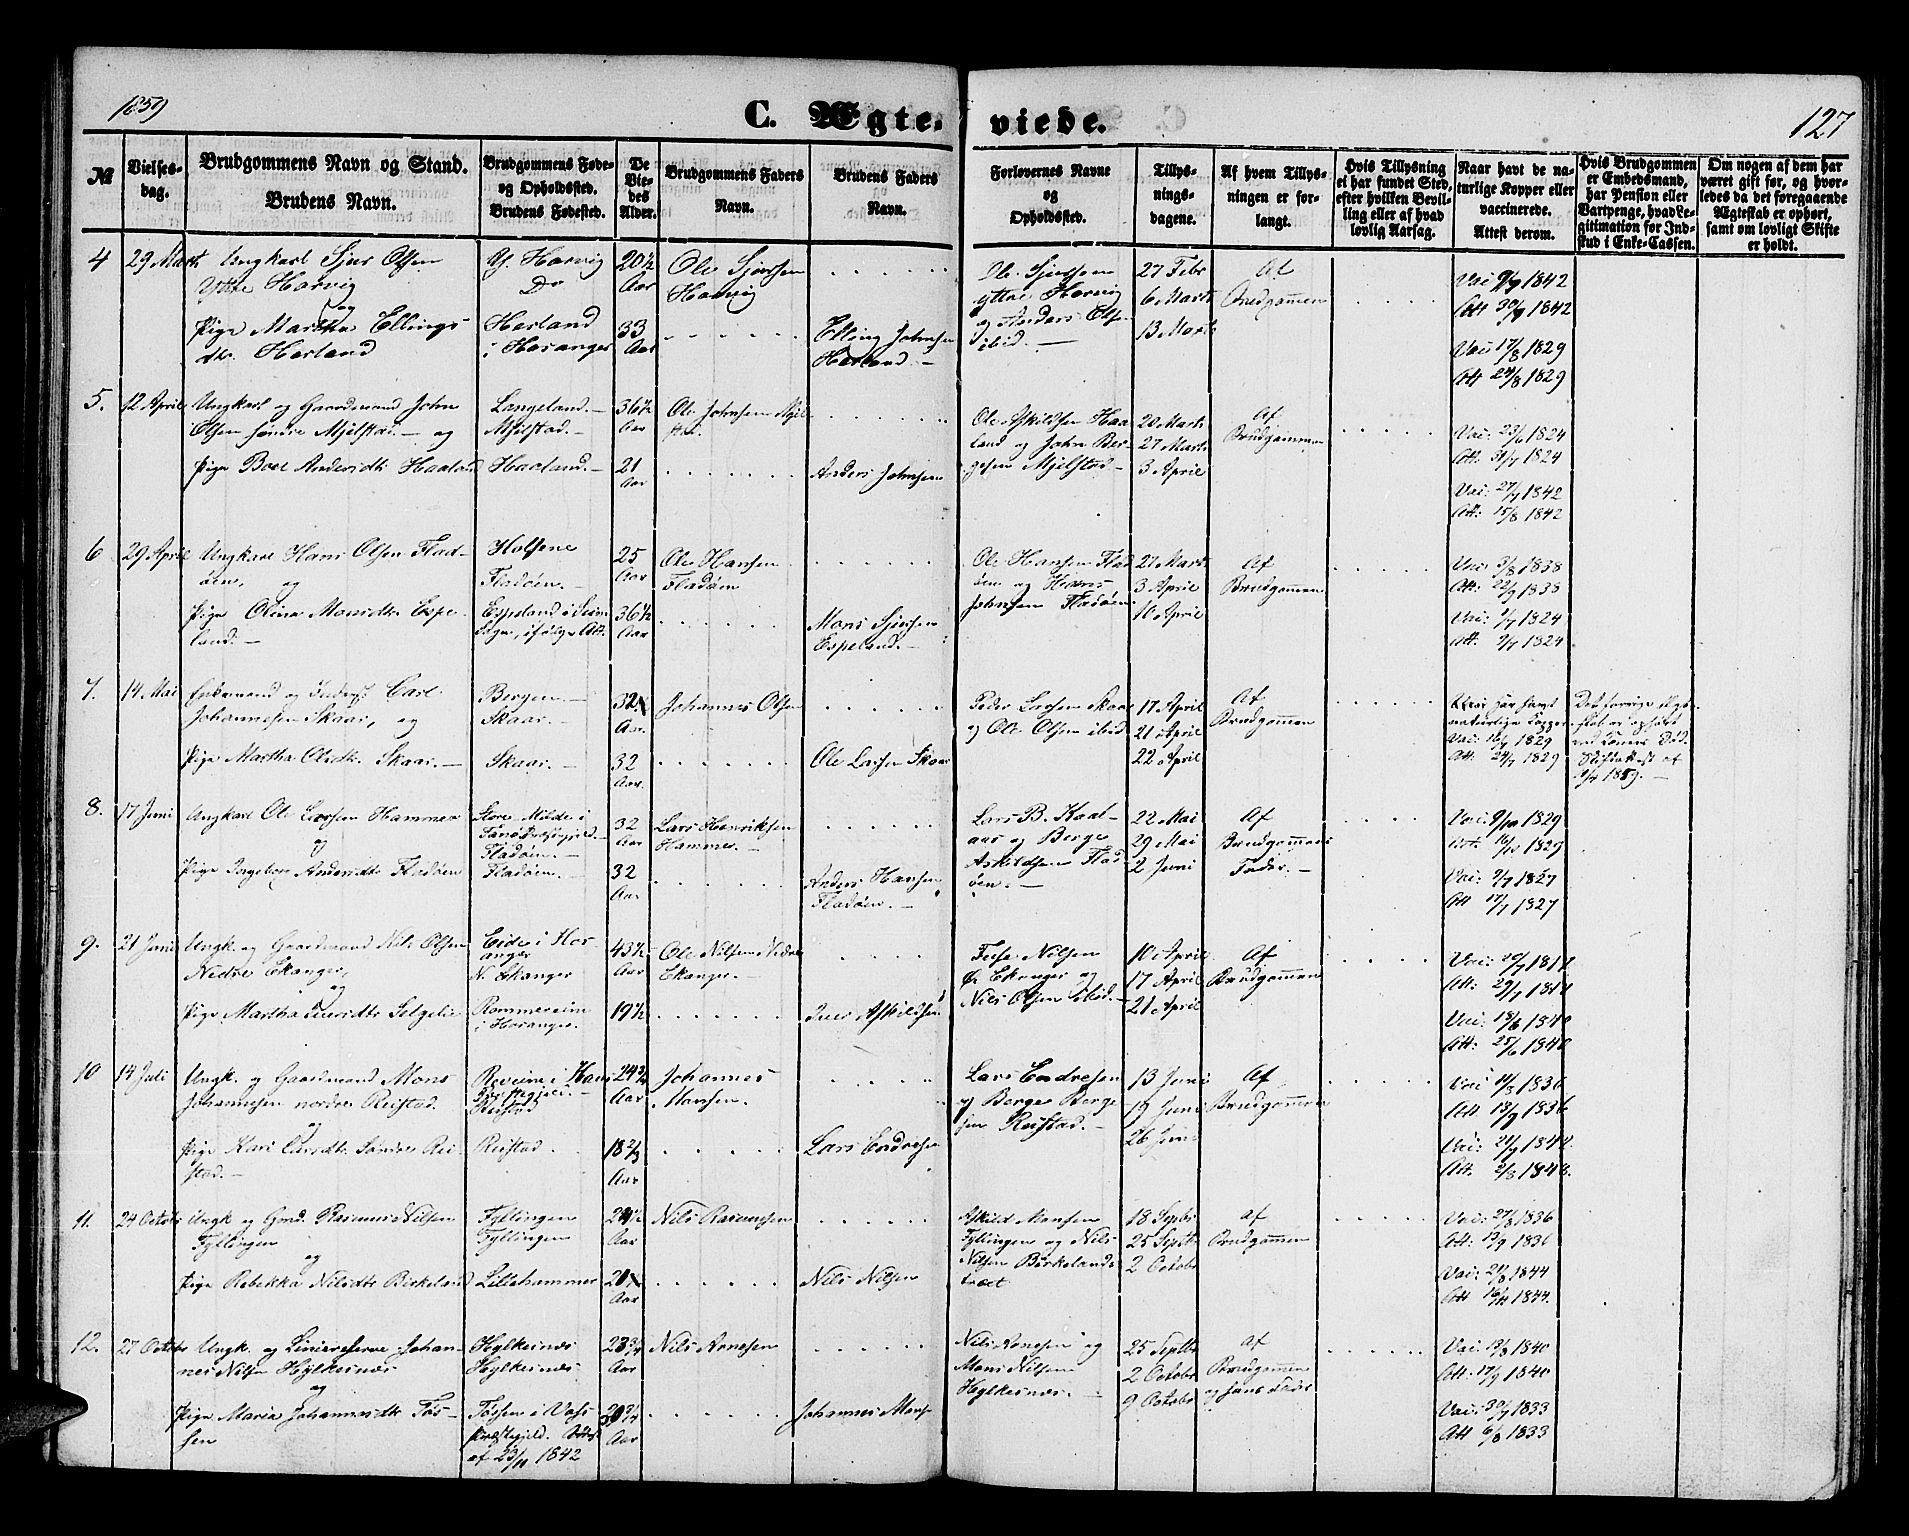 1859
C. Ægte-
viede.
127
№
Vielses-
dag.
Brudgommens Navn og Stand.
Brudens Navn.
Brudgommens Føde-
og Opholdssted.
Brudens Fødested.
De
Vie-
des
Alder.
Brudgommens Faders
Navn.
Brudens Faders
Navn.
Forlovernes Navne
og
Opholdssted.
Tillys-
nings-
dagene.
Af hvem Tillys-
ningen er for-
langt.
Hvis Tillysning
ei har fundet Sted,
efter hvilken Bevil-
ling eller af hvad
lovlig Aarsag.
Naar havt de na-
turlige Kopper eller
vaccinerede.
Attest derom.
Hvis Brudgommen
er Embedsmand,
har Pension eller
Vartpenge, hvad Le-
gitimation for Ind-
skud i Enke-Cassen.
Om nogen af dem har
været gift før, og hvor-
ledes da det foregaaende
Ægteskab er ophørt,
samt om lovligt Skifte
er holdt.
4 29 Marts Ungkarl Sjur Olsen
Ytre Horvig
og
Pige Martha Ellings
dtr. Herland
Horvig
Do
Herland
i Hosanger
20½
Aar
33
Aar
Ole Sjursen
Horvig
Elling Johnsen
Herland.
Ole Sjursen
ytre Horvig
og Anders Olsen
ibid.
27 Febr
6 Marts
13 Marts
Af
Brudgommen
Vac 9/7 1842
Att 30/9 1842
Vac 17/8 1829
Att 24/8 1829
5. 12 April Ungkarl og Gaardmand John
Olsen søndre Mjelstad. og
Pige Boel Andersdtr Haaland
Langeland.
Mjelstad.
Haaland.
36½
Aar
21
Aar
Ole Johnsen Mjel-
stad.
Anders Johnsen
Ole Askildsen Haa
land og John Ber-
gesen Mjelstad
20 Marts
27 Marts
3 April
Af
Brudgommen
Vac: 23/6 1824
Att: 31/7 1824
Vac: 27/7 1842
Att: 15/8 1842
6 29 April Ungkarl Hans Olsen Flad-
øen, og
Pige Olina Monsdtr Espe-
land.
Holsene
Fladøen.
Espeland i Seim
Sogn, ifølge Att.
25
Aar
36½
Aar
Ole Hansen
Fladøen
Mons Sjursen
Espeland.
Ole Hansen Flad
øen og Hans
Johnsen Fladøen
27 Marts
3 April
10 April
Af
Brudgommen
Vac: 3/8 1838
Att: 22/9 1838
Vac: 1/7 1824
Att: 9/7 1824
7. 14 Mai Enkemand og Inderst Carl
Johannesen Skaar, og
Pige Martha Olsdtr. Skaar.
Bergen.
Skaar.
Skaar.
32
Aar.
32
Aar.
Johannes Olsen
Ole Larsen Skaar
Peder Larsen Skaar
og Ole Olsen ibid
17 April
21 April
22 April
Af
Brudgommen
har havt
naturlige Kopper
Vac: 16/7 1829
Att: 24/7 1829
Det forrige Ægte-
skab er ophørt
ved Konens Død.
Skifteattest af
1859.
8. 17 Juni Ungkarl Ole Larsen Hammer
og
Pige Ingeborg Andersdtr Fladøen
Store Milde i
Fanø Præstegjeld.
Fladøen.
Fladøen.
32
Aar
32
Aar
Lars Henriksen
Hammer.
Anders Hansen
Fladøen.
Lars B. Kaal-
aas og Berge
Askildsen Flad
øen.
22 Mai
29 Mai
2 Juni
Af
Brudgommens
Fader.
Vac: 9/10 1829
Att: 16/10 1829
Vac: 9/7 1827
Att 17/7 1827
9. 21 Juni Ungk. og Gaardmand Nils Olsen
Nedre Ekanger,
og
Pige Martha Iversdtr Selgelie
Eide i Hos-
anger
N. Ekanger
Rommereim
i Hosanger.
43½
Aar
19½
Ole Nilsen Nedre
Ekanger.
Iver Askildsen
Nilsen
Ekanger og
Nils Olsen ibid.
10 April
17 April
21 April
Af
Brudgommen
Vac: 20/7 1817
Att: 29/7 1817
Vac: 18/6 1840
Att: 25/6 1840
10 14 Juli Ungk. og Gaardmand Mons
Johannesen nordre Reistad.
og
Pige Kari Larsdtr Søndre Rei-
stad.
Reveim i Haus
Præstegjeld.
Reistad
Reistad.
24¾
Aar
18⅔
Aar
Johannes
Monsen.
Lars Endresen
Lars Endresen
og Berge Berge
sen Reistad.
13 Juni
19 Juni
26 Juni
Af
Brudgommen
Vac: 11/8 1836
Att 13/9 1836
Vac: 24/7 1842
Att. 2/8 1842.
11. 24 Octobr Ungk og Grmd. Rasmus Nilsen
Fyllingen
og
Pige Rebekka Nilsdtr Birkeland
Fyllingen
Fyllingen
Lillehammer
24½
Aar
21
Aar
Nils Rasmusen
Nils Nilsen
Askild Monsen
Fyllingen og Nils
Nilsen Birkelands
træet
18 Septbr
25 Septbr
2 Octobr
Af
Brudgommen
Vac: 27/8 1836
Att: 13/9 1836
Vac: 24/8 1844
Att 16/11 1844.
12. 27 Octobr Ungk. og Liniereserve Johan-
nes Nilsen Hylkesnæs
og
Pige Maria Johannesdtr Tøs-
sen
Hylkesnæs
Hylkesnæs
Tøssen i Voss
Præstegjeld.
af 23/11 1842
23¾
Aar
30¾
Aar
Nils Arnesen
Johannes Mons
Nils Arnesen og
Mons Nilsen
Hylkesnæs.
25 Septbr
2 Octobr
9 Octobr
Af
Brudgommen
og hans Fader
Vac: 13/8 1840
Att: 17/9 1840
Vac: 30/7 1833
Att 6/8 1833